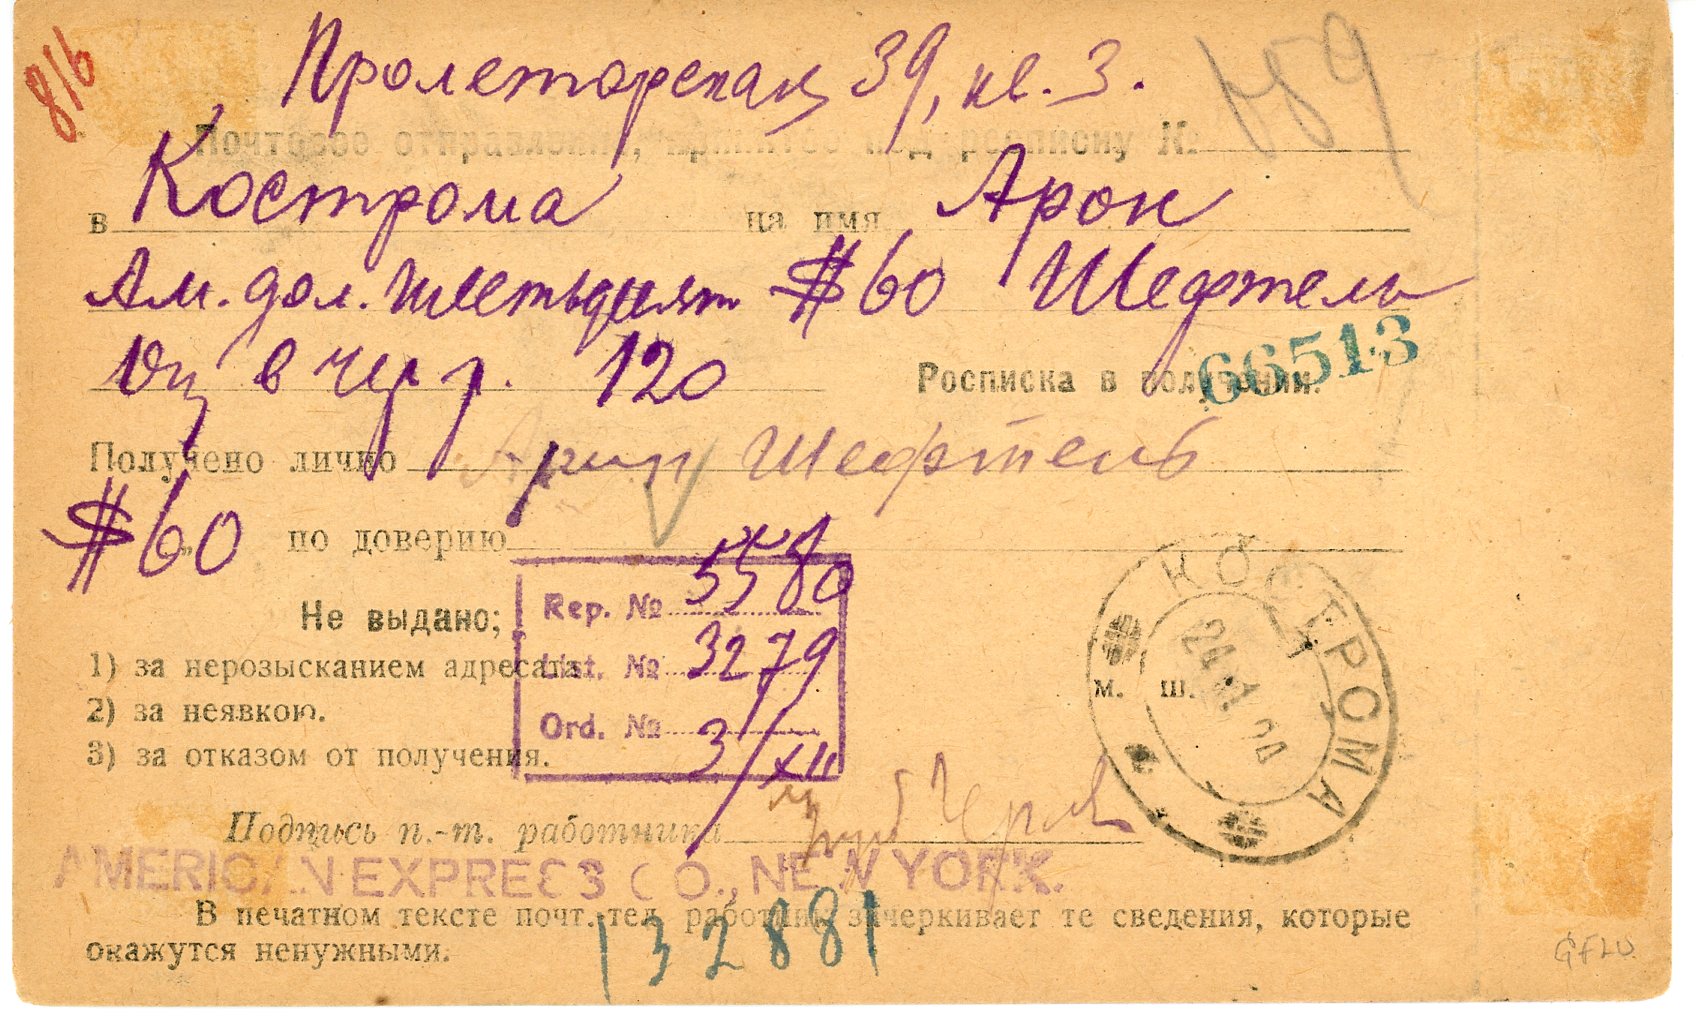 816
Пролетарская 39, кв. 3.
489
Почтовое отправление, принятое под росписку №
в Кострома на имя Арон
Ам. дол. шестьдесят $60 Шефтель
в чер р. 120
66513
Росписка в получении.
Получено лично Арон Шефтель
$60 по доверию
Rep. № 5580
Не выдано;
List. № 3279
1) за нерозысканием адресата
2) за неявкою.
Ord. № 3/XII
3) за отказом от получения.
КОСТРОМА
24
м. ш.
Подпись п.-т. работника
AMERICAN EXPRESS CO., NEW YORK.
В печатном тексте почт.тел. работник зачеркивает те сведения, которые
окажутся ненужными.
132881